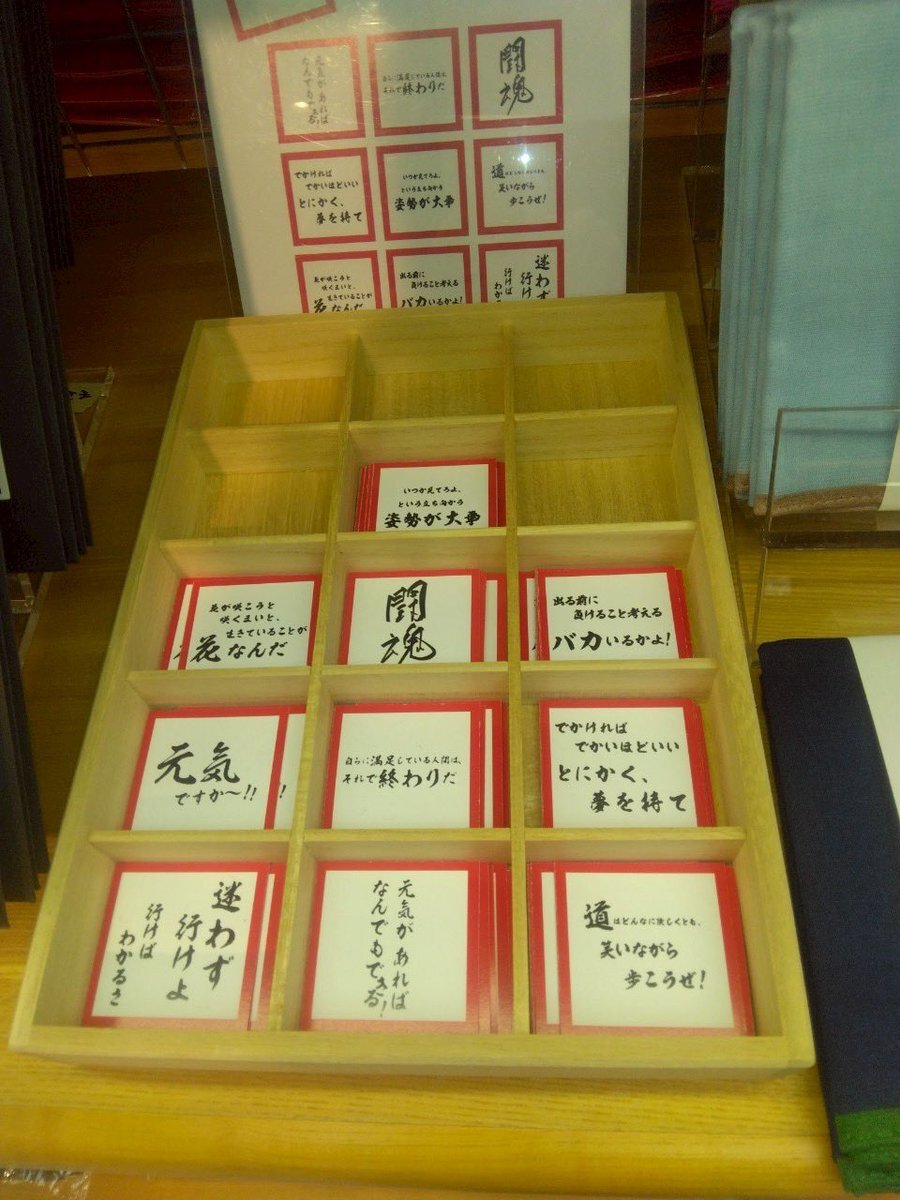 元気があれば
なんでもできる!
自らに満足している人間は、
それで終わりだ
闘
魂
でかければ
でかいほどいい
とにかく、
夢を持て
いつか見てろよ、
という立ち向かう
姿勢が大事
道はどんなに険しくとも、
笑いながら
歩こうぜ!
花が咲こうと
咲くまいと、
生きていることが
花なんだ
出る前に
負けること考える
バカいるかよ!
迷わず
行けよ
行けば
わかるさ
いつか見てろよ、
という立ち向かう
姿勢が大事
花が咲こうと
咲くまいと、
生きていることが
花なんだ
闘
魂
出る前に
負けること考える
バカいるかよ!
元気
ですか〜!!
自らに満足している人間は、
それで終わりだ
でかければ
でかいほどいい
とにかく、
夢を持て
迷わず
行けよ
行けば
わかるさ
元気があれば
なんでもできる!
道はどんなに険しくとも、
笑いながら
歩こうぜ!